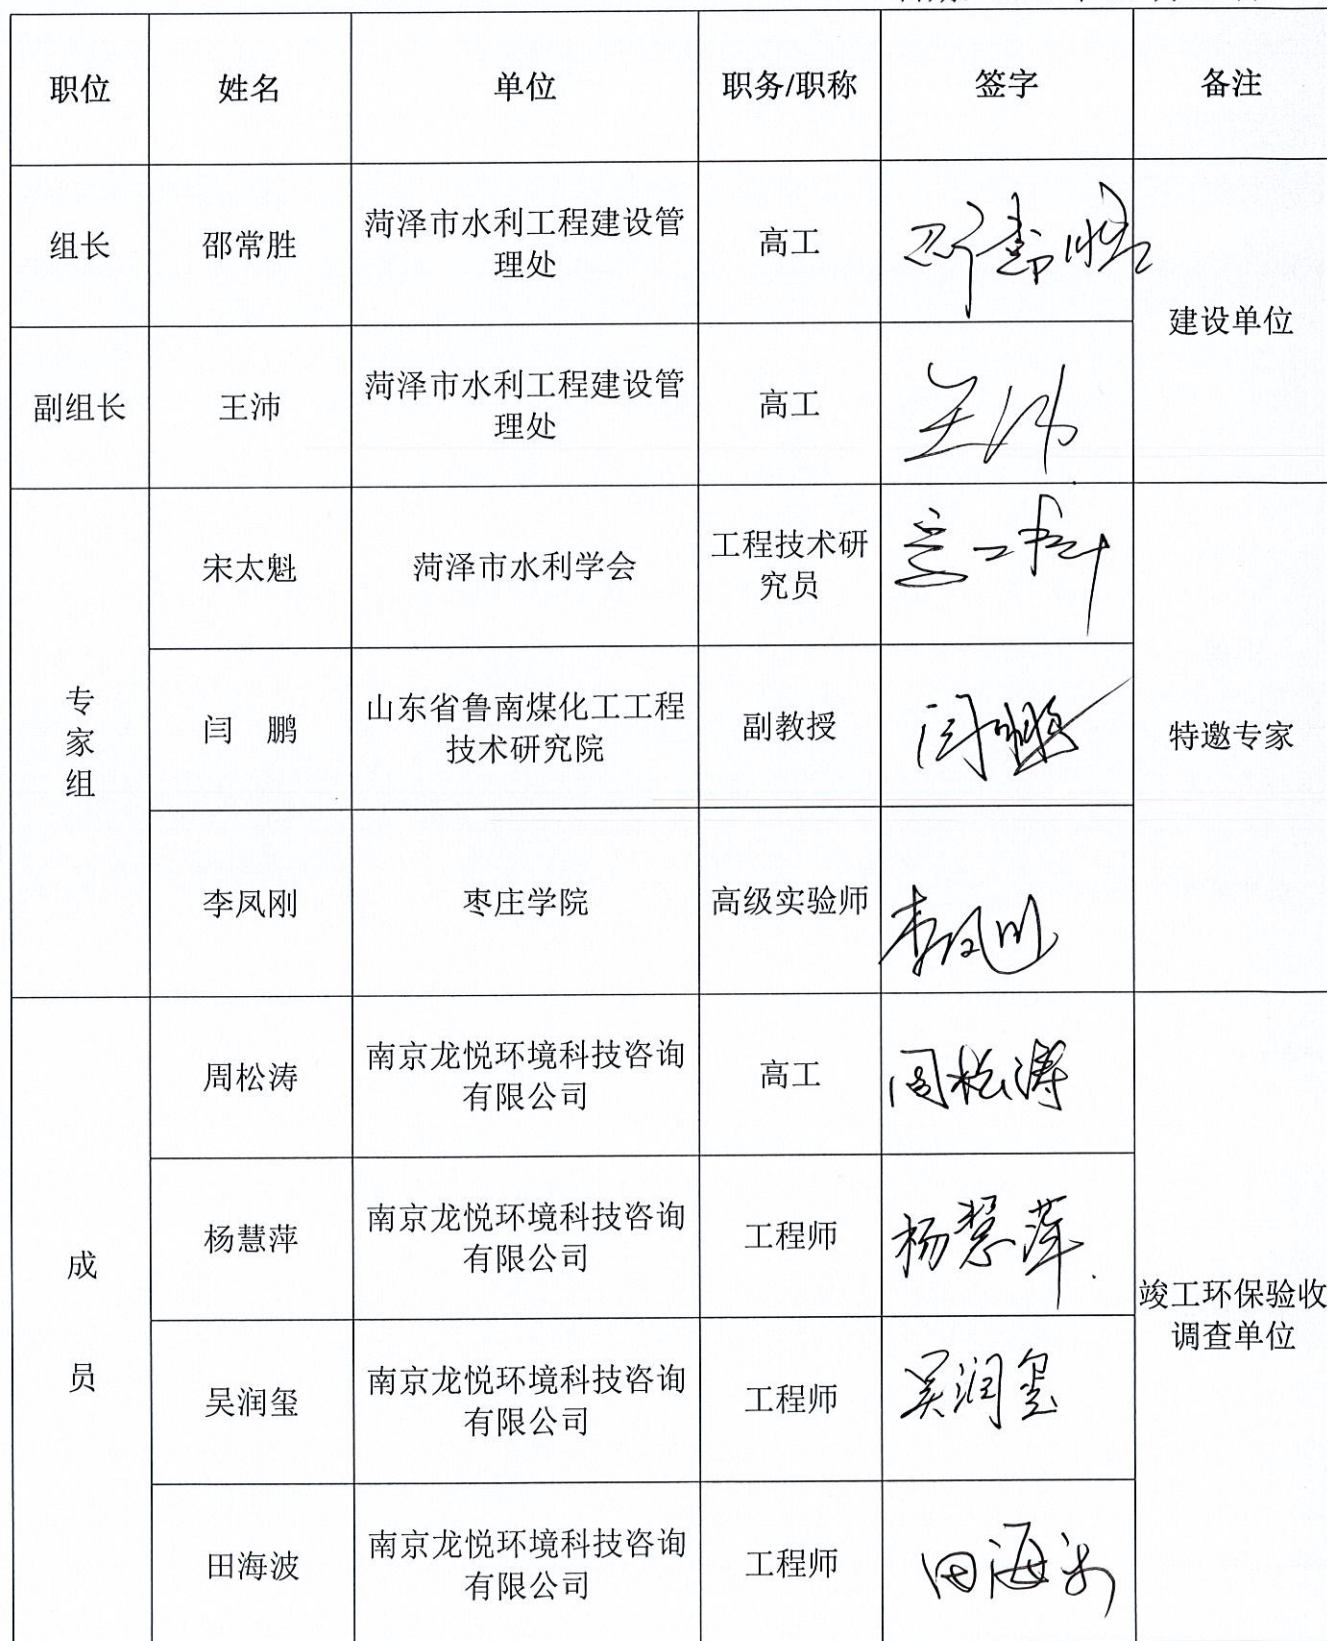 职位 姓名 单位 职务/职称 签字 备注
组长 邵常胜 菏泽市水利工程建设管
理处 高工 邵常胜
建设单位
副组长 王沛 菏泽市水利工程建设管
理处 高工 王沛
专
家
组
宋太魁 菏泽市水利学会 工程技术研
究员
闫 鹏 山东省鲁南煤化工工程
技术研究院 副教授 闫鹏
特邀专家
李凤刚 枣庄学院 高级实验师 李凤刚
成
员
周松涛 南京龙悦环境科技咨询
有限公司 高工 周松涛
杨慧萍 南京龙悦环境科技咨询
有限公司 工程师 杨慧萍
竣工环保验收
调查单位
吴润玺 南京龙悦环境科技咨询
有限公司 工程师 吴润玺
田海波 南京龙悦环境科技咨询
有限公司 工程师 田海波